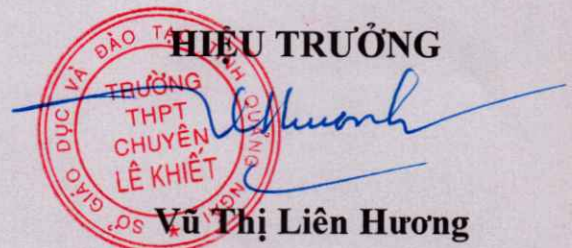 HIỆU TRƯỞNG
SỞ GIÁO DỤC VÀ ĐÀO TẠO TỈNH QUẢNG NGÃI
TRƯỜNG
THPT
CHUYÊN
LÊ KHIẾT
Vũ Thị Liên Hương